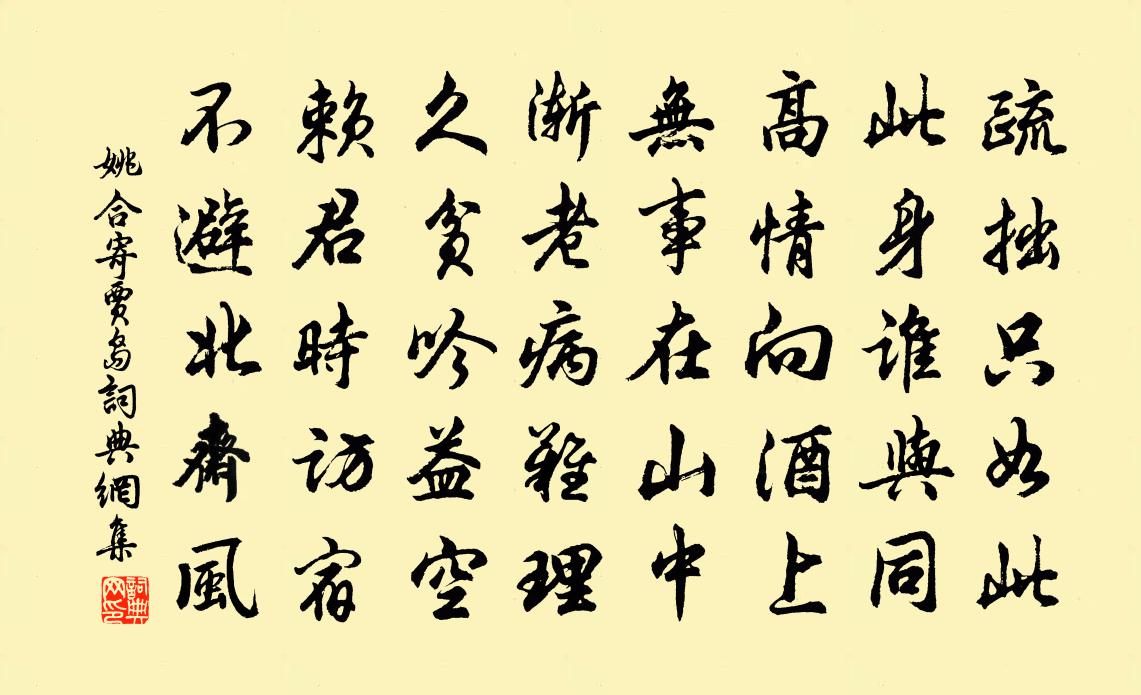 疏拙只如此
此身誰與同
高情向酒上
無事在山中
漸老病難理
久貧吟益空
賴君時訪宿
不避北齋風
姚合寄賈島詞典網集
詞典網印